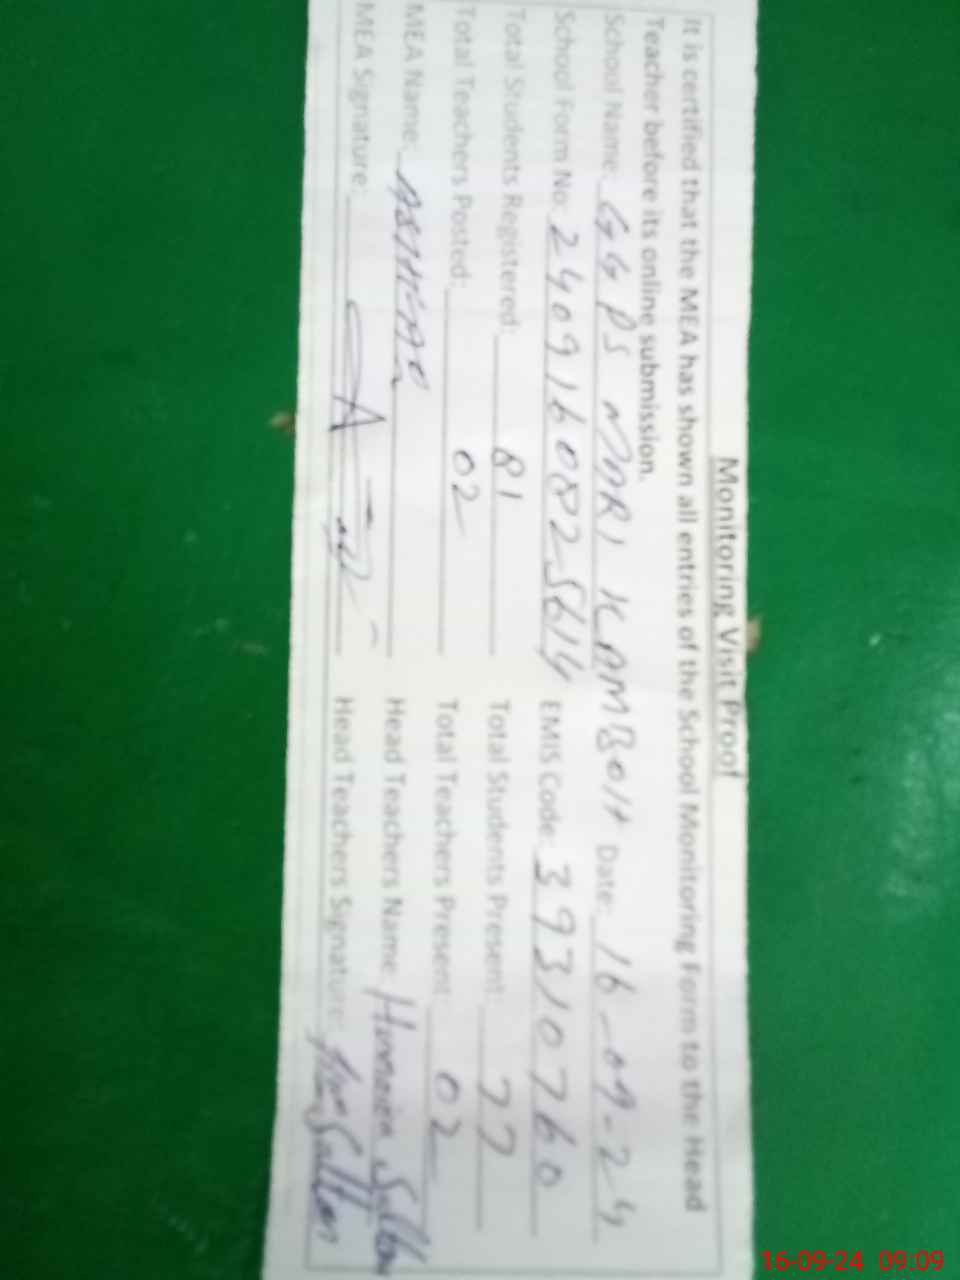 Monitoring Visit Proof
It is certified that the MEA has shown all entries of the School Monitoring Form to the Head
Teacher before its online submission.
School Name: GGPS NOORI KAMBOH Date: 16-09-24
School Form No: 2409160825614 EMIS Code: 39310760
Total Students Registered: 81 Total Students Present: 77
Total Teachers Posted: 02 Total Teachers Present: 02
MEA Name: Head Teachers Name: Humaira Sultan
MEA Signature: Head Teachers Signature: Sultan
16-09-24 09:09